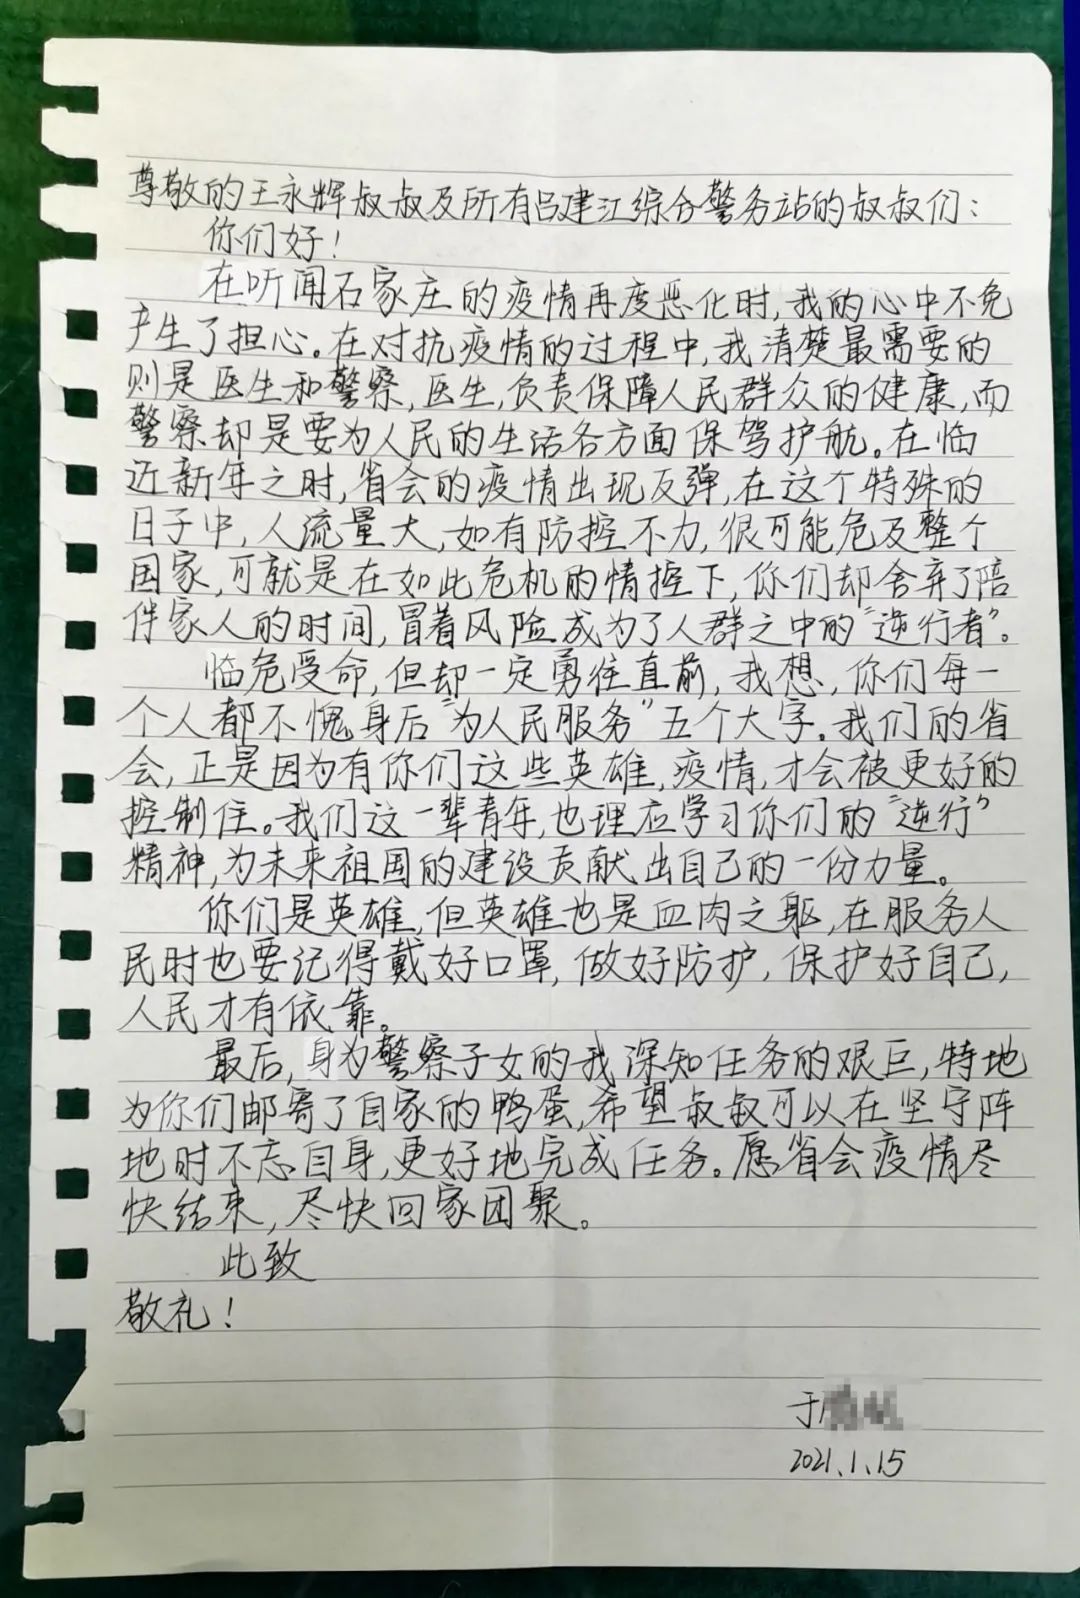 尊敬的王永辉叔叔及所有吕建江综合警务站的叔叔们：
你们好！
在听闻石家庄的疫情再度恶化时，我的心中不免
产生了担心。在对抗疫情的过程中，我清楚最需要的
则是医生和警察，医生，负责保障人民群众的健康，而
警察却是要为人民的生活各方面保驾护航。在临
近新年之时，省会的疫情出现反弹，在这个特殊的
日子中，人流量大，如有防控不力，很可能危及整个
国家，可就是在如此危机的情控下，你们却舍弃了陪
伴家人的时间，冒着风险成为了人群之中的“逆行者”。
临危受命，但却一定勇往直前，我想，你们每一
个人都不愧身后“为人民服务”五个大字。我们的省
会，正是因为有你们这些英雄，疫情，才会被更好的
控制住。我们这一辈青年，也理应学习你们的“逆行”
精神，为未来祖国的建设贡献出自己的一份力量。
你们是英雄，但英雄也是血肉之躯，在服务人
民时也要记得戴好口罩，做好防护，保护好自己，
人民才有依靠。
最后，身为警察子女的我深知任务的艰巨，特地
为你们邮寄了自家的鸭蛋，希望叔叔可以在坚守阵
地时不忘自身，更好地完成任务。愿省会疫情尽
快结束，尽快回家团聚。
此致
敬礼！
于
2021.1.15